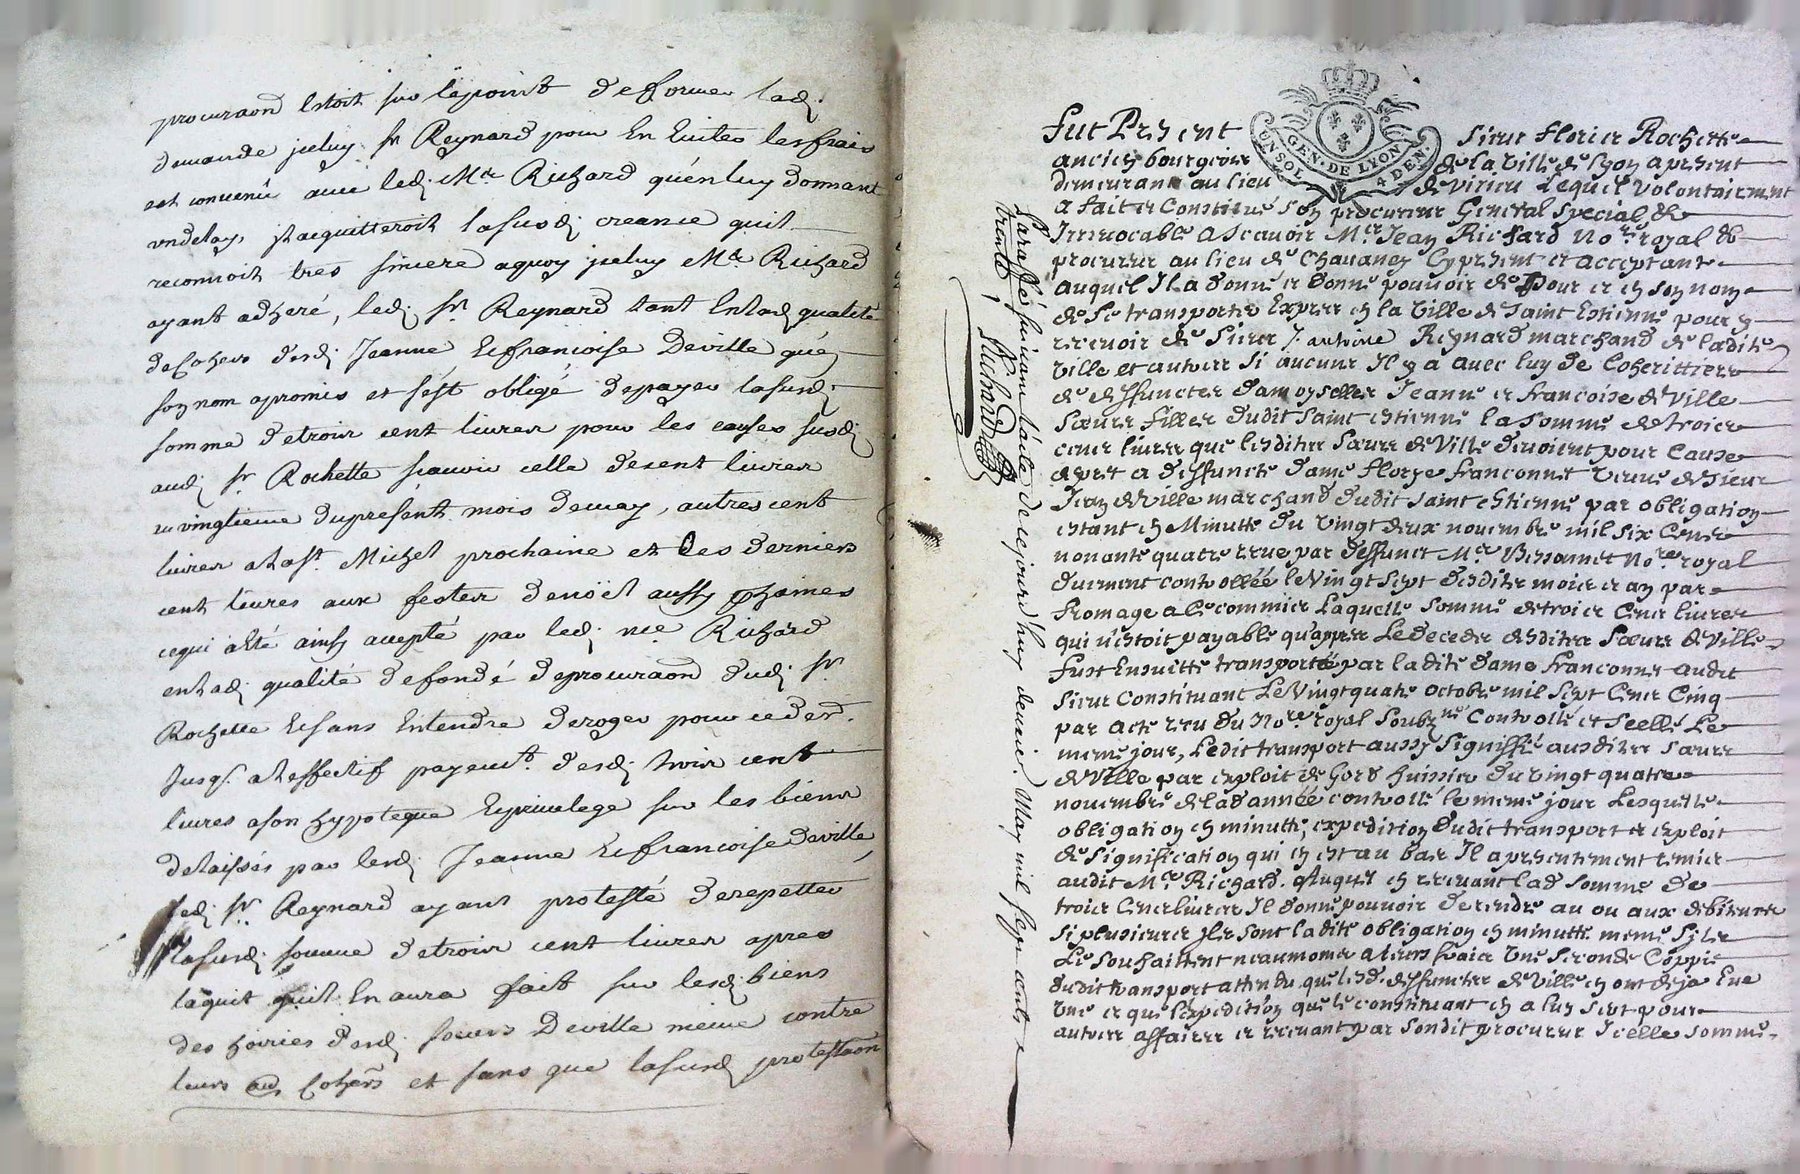 procuraon Estoit sur lepoint deformer lad.
demande jceluy sr Reynard pour En Eviter lesfrais
est convenû avec led. Me Richard qu'en luy donnant
undelay, jlacquitteroit lasusd. creance quil
reconnoit tres sincere aquoy jceluy Me Richard
ayant adheré, led. sr Reynard tant Enlad. qualité
deCohers desd. Jeanne Et francoise Deville qu'en
son nom a promis et s'est obligé depayer lasusd.
somme detrois cent livres pour les causes susd.
aud. sr Rochette scavoir celle decent livres
au vingtieme duprésent mois demay, autres cent
livres a la st Michel prochaine et Les derniers
cent livres aux festes denoël aussy pchaines
cequi a Eté ainsy accepté par led. me Richard
enlad. qualité defondé deprocuraon dud. sr
Rochette Et sans Entendre deroger pour ce desd.
Jusq. a leffectif payemt. desd. trois cent
livres ason hypoteque Et privelege sur les biens
delaissés par lesd. Jeanne Et francoise Deville,
led. sr. Reynard ayant protesté derepetter
lasusd. somme detrois cent livres apres
laquit quil En aura fait sur lesd. biens
des hoiries desd. soeurs Deville meme contre
leurs Cohers et sans que lasusd. protestaon
Fut Present Sieur Florier Rochette
ancien bourgeois de la Ville de Lyon apresent
demeurant au lieu de Virieu Lequel volontairement
a fait et Constitué son procureur General special &
Irrevocable A Scavoir Mer Jean Richard Nore royal &
procureur au lieu de Chavaney Cy present et acceptant
auquel Il a donné et donne pouvoir de Pour et en son nom
de Se transporter Exprez en la Ville de Saint Estienne pour y
recevoir de Sieur J. antoine Reynard marchand de ladite
Ville et autres Si aucuns Il y a avec luy de Coherittiers
de deffunctes damoyselles Jeanne et francoise de Ville
Sœurs filles dudit Saint estienne la Somme de trois
cens livres que lesdites Sœurs de Ville devoient pour Cause
de pret a deffuncte dame florye franconnet veuve de Sieur
Jean de Ville marchand dudit Saint estienne par obligation
estant en Minutte du vingt deux novembre mil six Cens
nonante quatre receue par deffunct Mer Bessonnet Nore royal
duement controllée le Vingt sept desdits mois et an par
fromage a Ce commis Laquelle somme de trois Cens livres
qui n'estoit payable qu'apprez Le deceds desdites Sœurs de Ville
fust Ensuitte transportée par ladite dame franconnet audit
Sieur Constituant Le Vingt quatre octobre mil Sept Cens Cinq
par acte receu du Nore royal soubzne Controllé et Scellé Le
meme jour, Ledit transport aussy Signiffié ausdites sœurs
de Ville par exploit de Gord huissier du vingt quatre
novembre de lad année controllé le meme jour Lesquelle
obligation en minutte, expedition dudit transport et exploit
de Signification qui en est au bas Il a presentement remis
audit Mer Richard. Auquel en recevant lad somme de
trois Cens livres Il donne pouvoir de rendre au ou aux debiteurs
si plusieurs jls sont ladite obligation en minutte meme Sy les
Le Souhaittent neaumoins a leurs fraix Une Seconde Coppie
dudit transport attendu que lesd. deffunctes de Ville en ont deja Eue
Une et que lexpedition que le constituant en a luy sert pour
autres affaires et recevant par Sondit procureur Icelle Somme
Paraffé suivant lacte de cejourd'huy dernier May mil sept cents
trente, Richard
GEN. DE LYON
UN SOL 4 DEN.